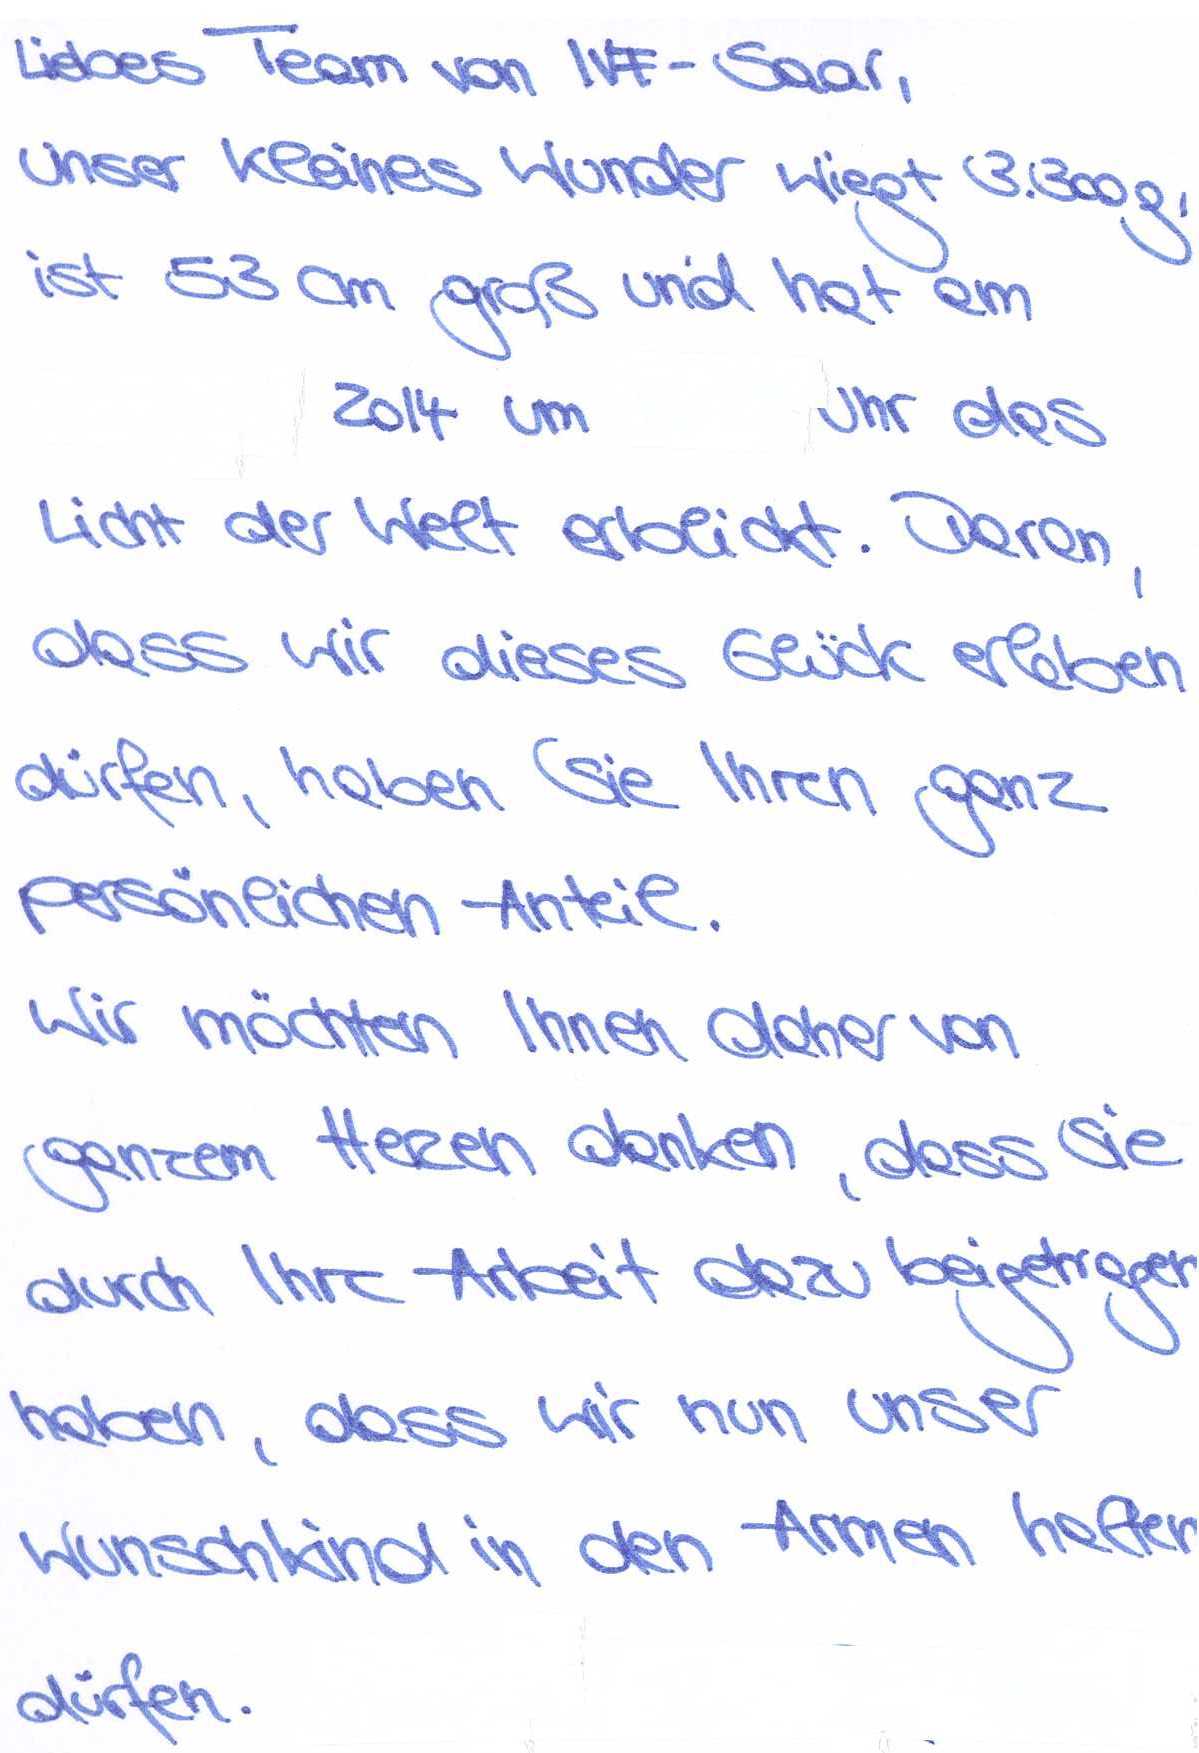 Liebes Team von IVF-Saar,
unser kleines Wunder wiegt 3.300g,
ist 53 cm groß und hat am
2014 um Uhr das
Licht der Welt erblickt. Daran,
dass wir dieses Glück erleben
dürfen, haben Sie Ihren ganz
persönlichen Anteil.
Wir möchten Ihnen daher von
ganzem Herzen danken, dass Sie
durch Ihre Arbeit dazu beigetragen
haben, dass wir nun unser
Wunschkind in den Armen halten
dürfen.